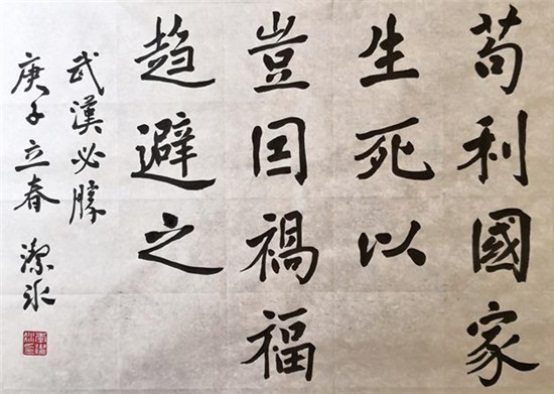 苟利國家
生死以
豈囙禍福
趋避之
武漢必勝
庚子立春 潔冰